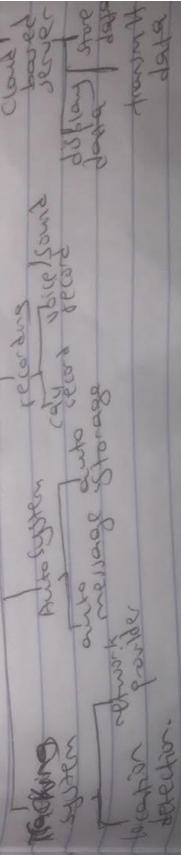 Tracking
System
location
detection.
network
provider
Auto System
auto
message
auto
storage
recording
call
record
voice/sound
record
Cloud
based
server
display
data
store
data
transmitt
data